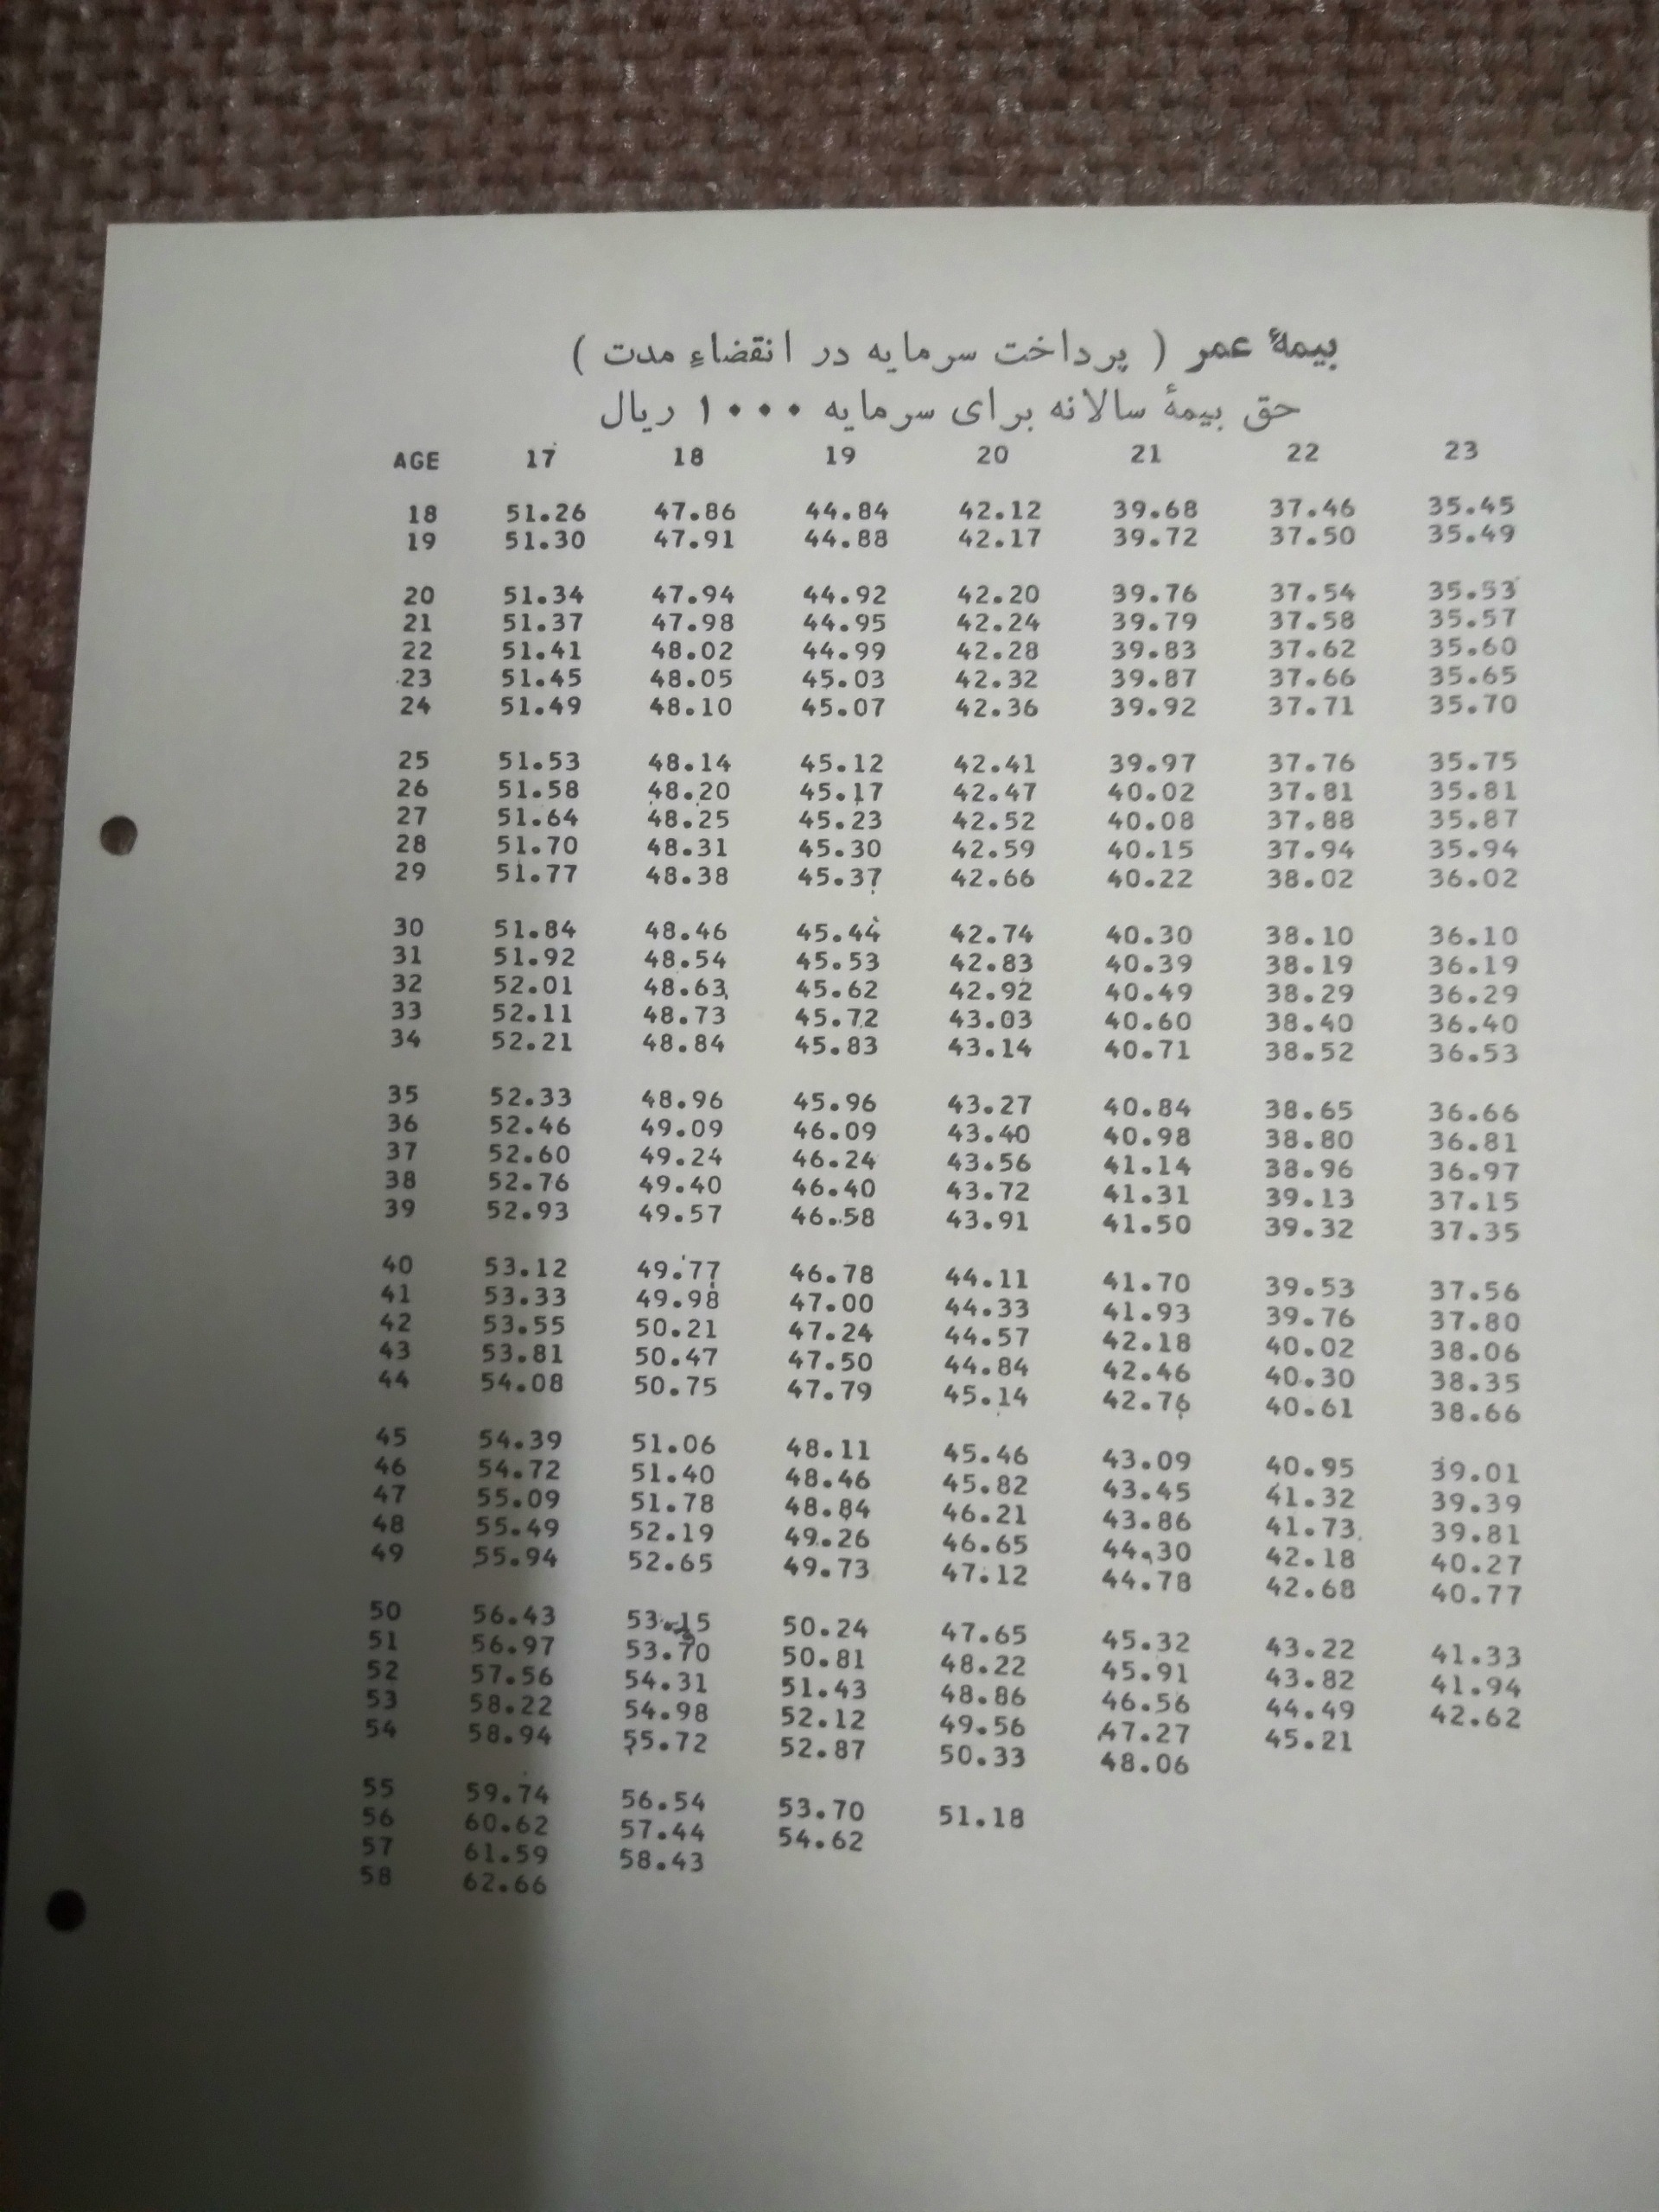 بیمهٔ عمر ( پرداخت سرمایه در انقضاءِ مدت )
حق بیمهٔ سالانه برای سرمایه ۱۰۰۰ ریال
AGE 17 18 19 20 21 22 23
18 51.26 47.86 44.84 42.12 39.68 37.46 35.45
19 51.30 47.91 44.88 42.17 39.72 37.50 35.49
20 51.34 47.94 44.92 42.20 39.76 37.54 35.53
21 51.37 47.98 44.95 42.24 39.79 37.58 35.57
22 51.41 48.02 44.99 42.28 39.83 37.62 35.60
23 51.45 48.05 45.03 42.32 39.87 37.66 35.65
24 51.49 48.10 45.07 42.36 39.92 37.71 35.70
25 51.53 48.14 45.12 42.41 39.97 37.76 35.75
26 51.58 48.20 45.17 42.47 40.02 37.81 35.81
27 51.64 48.25 45.23 42.52 40.08 37.88 35.87
28 51.70 48.31 45.30 42.59 40.15 37.94 35.94
29 51.77 48.38 45.37 42.66 40.22 38.02 36.02
30 51.84 48.46 45.44 42.74 40.30 38.10 36.10
31 51.92 48.54 45.53 42.83 40.39 38.19 36.19
32 52.01 48.63 45.62 42.92 40.49 38.29 36.29
33 52.11 48.73 45.72 43.03 40.60 38.40 36.40
34 52.21 48.84 45.83 43.14 40.71 38.52 36.53
35 52.33 48.96 45.96 43.27 40.84 38.65 36.66
36 52.46 49.09 46.09 43.40 40.98 38.80 36.81
37 52.60 49.24 46.24 43.56 41.14 38.96 36.97
38 52.76 49.40 46.40 43.72 41.31 39.13 37.15
39 52.93 49.57 46.58 43.91 41.50 39.32 37.35
40 53.12 49.77 46.78 44.11 41.70 39.53 37.56
41 53.33 49.98 47.00 44.33 41.93 39.76 37.80
42 53.55 50.21 47.24 44.57 42.18 40.02 38.06
43 53.81 50.47 47.50 44.84 42.46 40.30 38.35
44 54.08 50.75 47.79 45.14 42.76 40.61 38.66
45 54.39 51.06 48.11 45.46 43.09 40.95 39.01
46 54.72 51.40 48.46 45.82 43.45 41.32 39.39
47 55.09 51.78 48.84 46.21 43.86 41.73 39.81
48 55.49 52.19 49.26 46.65 44.30 42.18 40.27
49 55.94 52.65 49.73 47.12 44.78 42.68 40.77
50 56.43 53.15 50.24 47.65 45.32 43.22 41.33
51 56.97 53.70 50.81 48.22 45.91 43.82 41.94
52 57.56 54.31 51.43 48.86 46.56 44.49 42.62
53 58.22 54.98 52.12 49.56 47.27 45.21
54 58.94 55.72 52.87 50.33 48.06
55 59.74 56.54 53.70 51.18
56 60.62 57.44 54.62
57 61.59 58.43
58 62.66